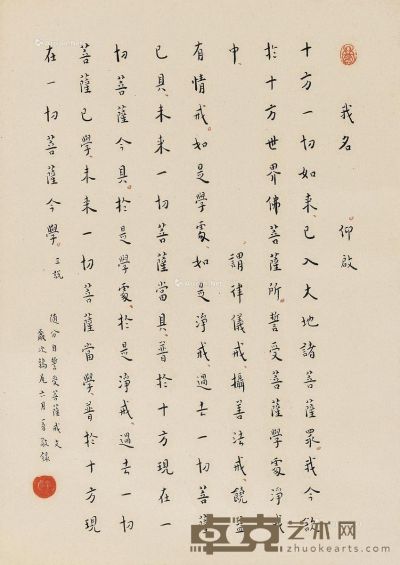 我名　仰啟
十方一切如来已入大地諸菩薩眾我今欲
於十方世界佛菩薩所誓受菩薩學處淨戒
中
謂律儀戒攝善法戒饒益
有情戒如是學處如是淨戒過去一切菩薩
已具未来一切菩薩當具普於十方現在一
切菩薩今具於是學處於是淨戒過去一切
菩薩已學未来一切菩薩當學普於十方現
在一切菩薩今學 三說
随分自誓受菩薩戒文
歲次鶉尾六月 敬錄
卓克艺术网
zhuokearts.com